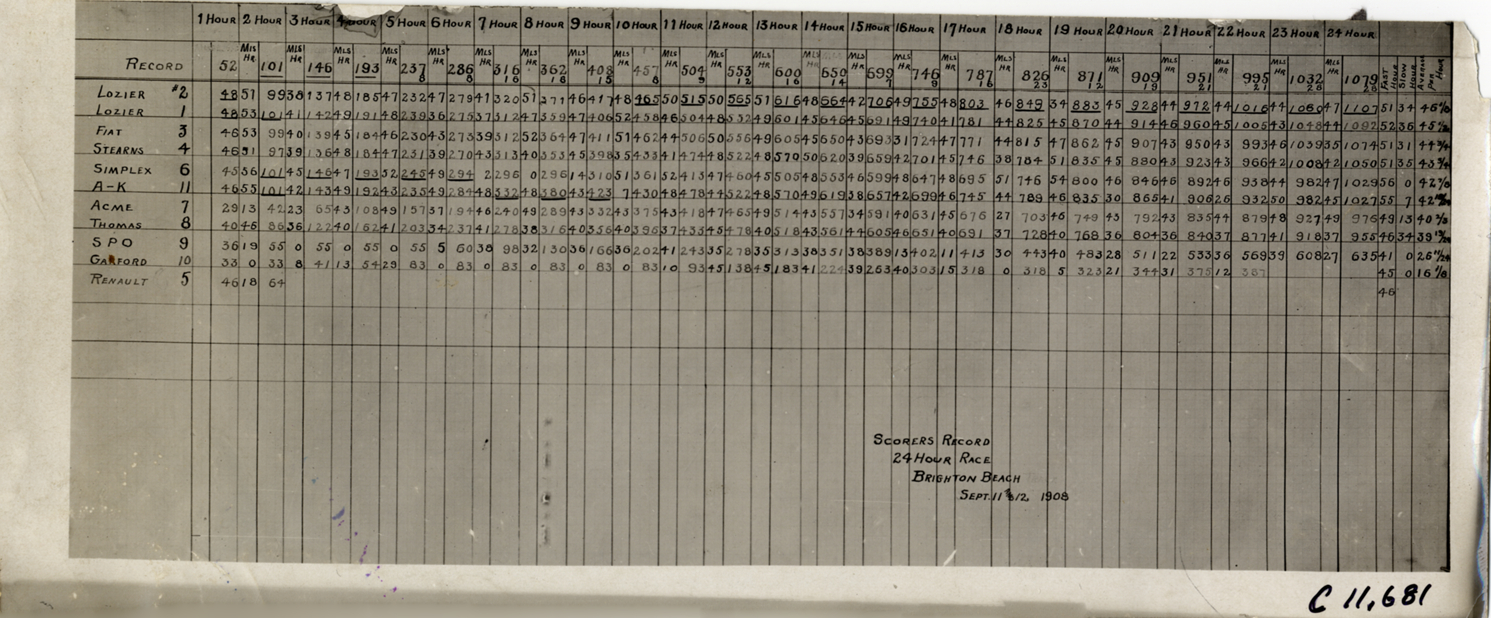 1 Hour 2 Hour 3 Hour 4 Hour 5 Hour 6 Hour 7 Hour 8 Hour 9 Hour 10 Hour 11 Hour 12 Hour 13 Hour 14 Hour 15 Hour 16 Hour 17 Hour 18 Hour 19 Hour 20 Hour 21 Hour 22 Hour 23 Hour 24 Hour
Mls Hr Mls Hr Mls Hr Mls Hr Mls Hr Mls Hr Mls Hr Mls Hr Mls Hr Mls Hr Mls Hr Mls Hr Mls Hr Mls Hr Mls Hr Mls Hr Mls Hr Mls Hr Mls Hr Mls Hr Mls Hr Mls Hr Mls Hr Fast Hour Slow Hour Average Per Hour
Record 52 101 146 193 237 286 316 362 408 457 504 553 600 650 699 746 787 826 871 909 951 995 1032 1079
8 8 16 18 15 8 9 12 16 14 7 9 16 23 12 19 21 21 28 20
Lozier #2 48 51 99 38 137 48 185 47 232 47 279 41 320 51 371 46 417 48 465 50 515 50 565 51 616 48 664 42 706 49 755 48 803 46 849 34 883 45 928 44 972 44 1016 44 1060 47 1107 51 34 46
Lozier 1 48 53 101 41 142 49 191 48 239 36 275 37 312 47 359 47 406 52 458 46 504 48 552 49 601 45 646 45 691 49 740 41 781 44 825 45 870 44 914 46 960 45 1005 43 1048 44 1092 52 36 45
Fiat 3 46 53 99 40 139 45 184 46 230 43 273 39 312 52 364 47 411 51 462 44 506 50 556 49 605 45 650 43 693 31 724 47 771 44 815 47 862 45 907 43 950 43 993 46 1039 35 1074 51 31 44
Stearns 4 46 51 97 39 136 48 184 47 231 39 270 43 313 40 353 45 398 35 433 41 474 48 522 48 570 50 620 39 659 42 701 45 746 38 784 51 835 45 880 43 923 43 966 42 1008 42 1050 51 35 43
Simplex 6 45 56 101 45 146 47 193 52 245 49 294 2 296 0 296 14 310 51 361 52 413 47 460 45 505 48 553 46 599 48 647 48 695 51 746 54 800 46 846 46 892 46 938 44 982 47 1029 56 0 42
A-K 11 46 55 101 42 143 49 192 43 235 49 284 48 332 48 380 43 423 7 430 48 478 44 522 48 570 49 619 38 657 42 699 46 745 44 789 46 835 30 865 41 906 26 932 50 982 45 1027 55 7 42
Acme 7 29 13 42 23 65 43 108 49 157 37 194 46 240 49 289 43 332 43 375 43 418 47 465 49 514 43 557 34 591 40 631 45 676 27 703 46 749 43 792 43 835 44 879 48 927 49 976 49 13 40
Thomas 8 40 46 86 36 122 40 162 41 203 34 237 41 278 38 316 40 356 40 396 37 433 45 478 40 518 43 561 44 605 46 651 40 691 37 728 40 768 36 804 36 840 37 877 41 918 37 955 46 34 39
S P O 9 36 19 55 0 55 0 55 0 55 5 60 38 98 32 130 36 166 36 202 41 243 35 278 35 313 38 351 38 389 13 402 11 413 30 443 40 483 28 511 22 533 36 569 39 608 27 635 41 0 26
Garford 10 33 0 33 8 41 13 54 29 83 0 83 0 83 0 83 0 83 0 83 10 93 45 138 45 183 41 224 39 263 40 303 15 318 0 318 5 323 21 344 31 375 12 387 45 0 16
Renault 5 46 18 64 46
Scorers Record
24 Hour Race
Brighton Beach
Sept. 11 & 12, 1908
C 11,681